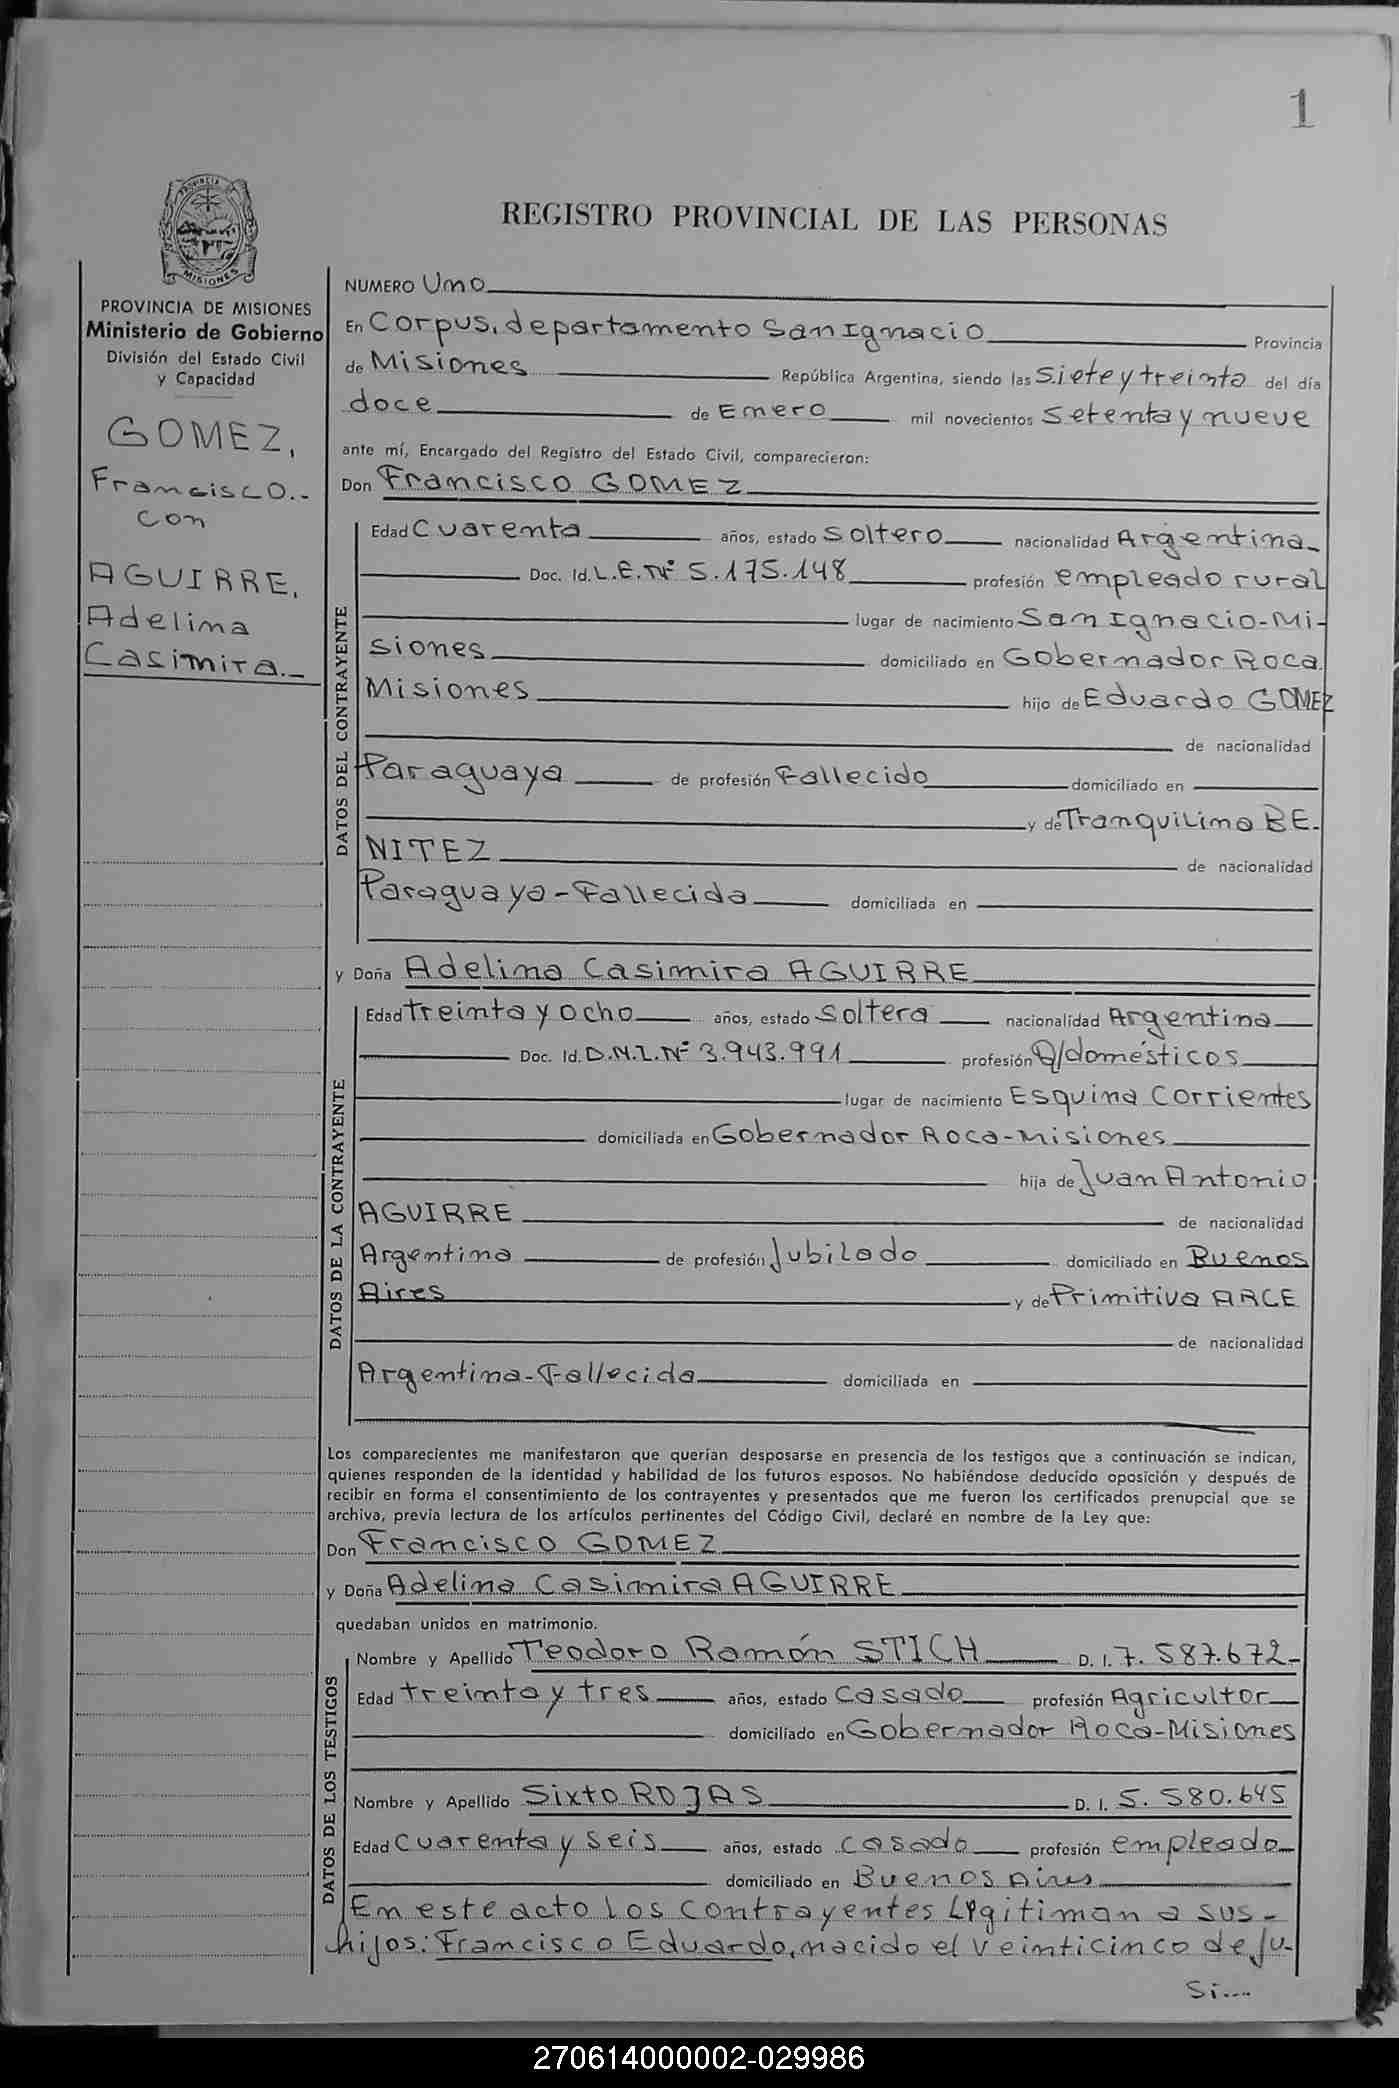 1
PROVINCIA
MISIONES
REGISTRO PROVINCIAL DE LAS PERSONAS
PROVINCIA DE MISIONES
Ministerio de Gobierno
División del Estado Civil
y Capacidad
GOMEZ,
Francisco.-
con
AGUIRRE,
Adelima
Casimira.-
NUMERO Uno
En Corpus, departamento San Ignacio Provincia
de Misiones República Argentina, siendo las siete y treinta del día
doce de Enero mil novecientos setenta y nueve
ante mí, Encargado del Registro del Estado Civil, comparecieron:
Don Francisco GOMEZ
DATOS DEL CONTRAYENTE
Edad Cuarenta años, estado soltero nacionalidad Argentina
Doc. Id. L.E. Nº 5.175.148 profesión empleado rural
lugar de nacimiento San Ignacio-Mi-
siones domiciliado en Gobernador Roca
Misiones hijo de Eduardo GOMEZ
de nacionalidad
Paraguaya de profesión Fallecido domiciliado en
y de Tranquilina BE-
NITEZ de nacionalidad
Paraguaya-Fallecida domiciliada en
y Doña Adelina Casimira AGUIRRE
DATOS DE LA CONTRAYENTE
Edad treinta y ocho años, estado soltera nacionalidad Argentina
Doc. Id. D.N.I. Nº 3.943.991 profesión Q/domésticos
lugar de nacimiento Esquina Corrientes
domiciliada en Gobernador Roca-Misiones
hija de Juan Antonio
AGUIRRE de nacionalidad
Argentina de profesión Jubilado domiciliado en Buenos
Aires y de Primitiva ARCE
de nacionalidad
Argentina-Fallecida domiciliada en
Los comparecientes me manifestaron que querían desposarse en presencia de los testigos que a continuación se indican,
quienes responden de la identidad y habilidad de los futuros esposos. No habiéndose deducido oposición y después de
recibir en forma el consentimiento de los contrayentes y presentados que me fueron los certificados prenupcial que se
archiva, previa lectura de los artículos pertinentes del Código Civil, declaré en nombre de la Ley que:
Don Francisco GOMEZ
y Doña Adelina Casimira AGUIRRE
quedaban unidos en matrimonio.
DATOS DE LOS TESTIGOS
Nombre y Apellido Teodoro Ramón STICH D. I. 7.587.672-
Edad treinta y tres años, estado casado profesión Agricultor
domiciliado en Gobernador Roca-Misiones
Nombre y Apellido Sixto ROJAS D. I. 5.580.645
Edad cuarenta y seis años, estado casado profesión empleado
domiciliado en Buenos Aires
En este acto los contrayentes legitiman a sus-
hijos: Francisco Eduardo, nacido el veinticinco de Ju-
Si....
270614000002-029986